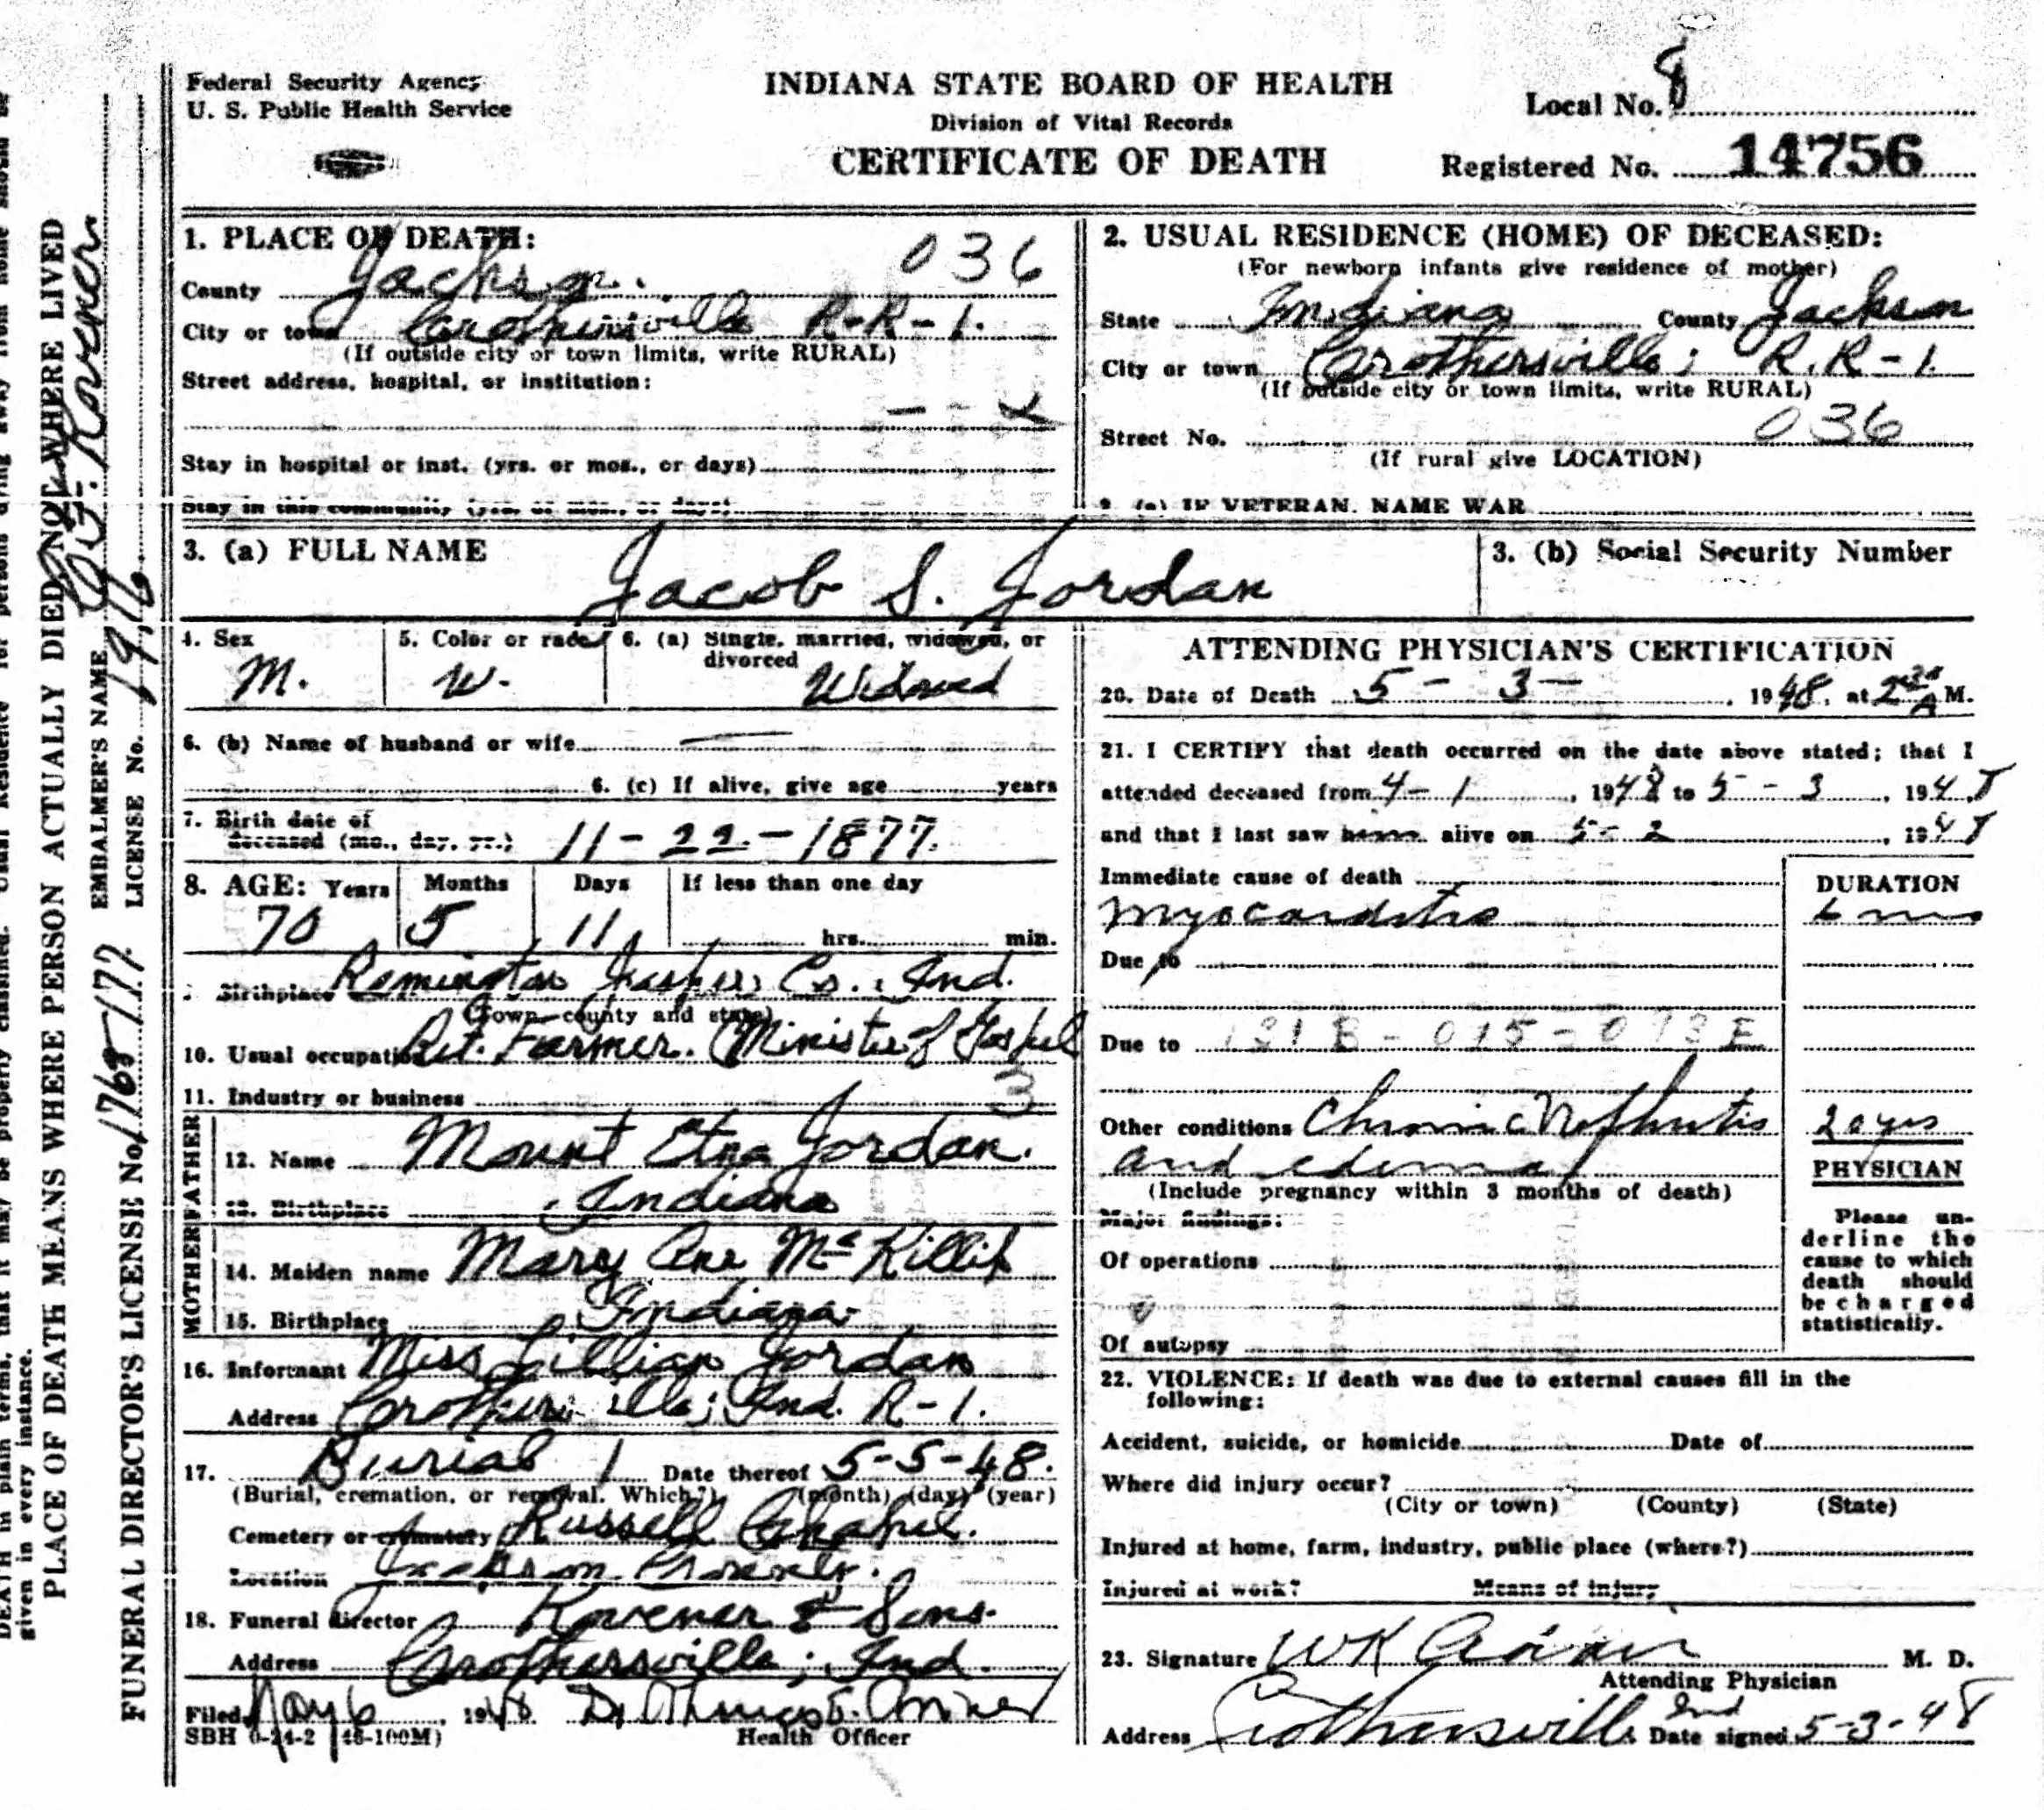 Federal Security Agency
U. S. Public Health Service
INDIANA STATE BOARD OF HEALTH
Division of Vital Records
CERTIFICATE OF DEATH
Local No. 8
Registered No. 14756
1. PLACE OF DEATH:
036
County Jackson
City or town Crothersville R-R-1.
(If outside city or town limits, write RURAL)
Street address, hospital, or institution:
Stay in hospital or inst. (yrs. or mos., or days)
Stay in this community (yrs. or mos., or days)
2. USUAL RESIDENCE (HOME) OF DECEASED:
(For newborn infants give residence of mother)
State Indiana County Jackson
City or town Crothersville; R.R-1.
(If outside city or town limits, write RURAL)
Street No. 036
(If rural give LOCATION)
2. (a) IF VETERAN, NAME WAR
3. (a) FULL NAME Jacob S. Jordan
3. (b) Social Security Number
4. Sex M.
5. Color or race W.
6. (a) Single, married, widowed, or divorced Widowed
6. (b) Name of husband or wife —
6. (c) If alive, give age years
7. Birth date of
deceased (mo., day, yr.) 11-22-1877.
8. AGE: Years Months Days If less than one day
70 5 11 hrs. min.
Birthplace Remington Jasper Co., Ind.
(Town, county and state)
10. Usual occupation Ret. Farmer. (Minister of Gospel
11. Industry or business 3
FATHER
12. Name Mount Etna Jordan.
13. Birthplace Indiana
MOTHER
14. Maiden name Mary Ane McKillip
15. Birthplace Indiana
16. Informant Miss Lillian Jordan
Address Crothersville; Ind. R-1.
17. Burial Date thereof 5-5-48.
(Burial, cremation, or removal. Which?) (month) (day) (year)
Cemetery or crematory Russell Chapel.
Location Jackson County.
18. Funeral director Kovener & Sons.
Address Crothersville; Ind.
Filed May 6, 1948 Dr
SBH 6-24-2 (46-100M) Health Officer
ATTENDING PHYSICIAN'S CERTIFICATION
20. Date of Death 5 - 3 - , 1948, at 2 30 A M.
21. I CERTIFY that death occurred on the date above stated; that I
attended deceased from 4-1, 1948 to 5-3, 1948
and that I last saw him alive on 5-2, 1948
Immediate cause of death DURATION
Myocarditis 6 mos
Due to
Due to
Other conditions Chronic Nephritis
and edema
(Include pregnancy within 3 months of death)
PHYSICIAN
Please underline the
cause to which
death should
be charged
statistically.
Major findings:
Of operations
Of autopsy
22. VIOLENCE: If death was due to external causes fill in the
following:
Accident, suicide, or homicide Date of
Where did injury occur?
(City or town) (County) (State)
Injured at home, farm, industry, public place (where?)
Injured at work? Means of injury
23. Signature WK M. D.
Attending Physician
Address Crothersville Ind Date signed 5-3-48
given in every instance.
PLACE OF DEATH MEANS WHERE PERSON ACTUALLY DIED, NOT WHERE LIVED
EMBALMER'S NAME Kovener
FUNERAL DIRECTOR'S LICENSE No. LICENSE No.